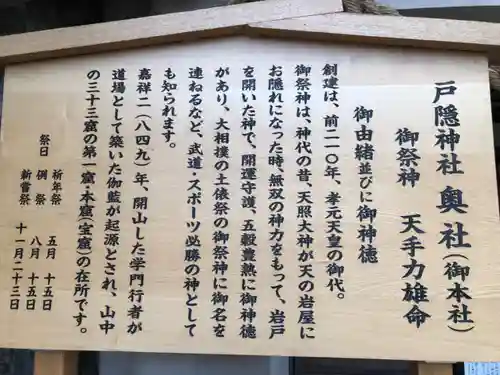 戸隠神社 奥社(御本社)
御祭神 天手力雄命
御由緒並びに御神徳
創建は、前二一〇年、孝元天皇の御代。
御祭神は、神代の昔、天照大神が天の岩屋に
お隠れになった時、無双の神力をもって、岩戸
を開いた神で、開運守護、五穀豊熟に御神徳
があり、大相撲の土俵祭の御祭神に御名を
連ねるなど、武道・スポーツ必勝の神として
も知られます。
嘉祥二(八四九)年、開山した学門行者が
道場として築いた伽藍が起源とされ、山中
の三十三窟の第一窟・本窟(宝窟)の在所です。
祭日
祈年祭 五月 十五日
例祭 八月 十五日
新嘗祭 十一月二十三日